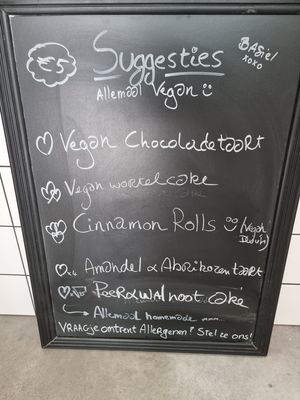 €5
Suggesties
BASiel
xoxo
Allemaal Vegan
Vegan Chocoladetaart
Vegan wortelcake
Cinnamon Rolls (Vegan
Amandel & Abrikozentaart
Peer & Walnoot cake
Allemaal homemade
VRAAGje omtrent Allergenen? Stel ze ons!